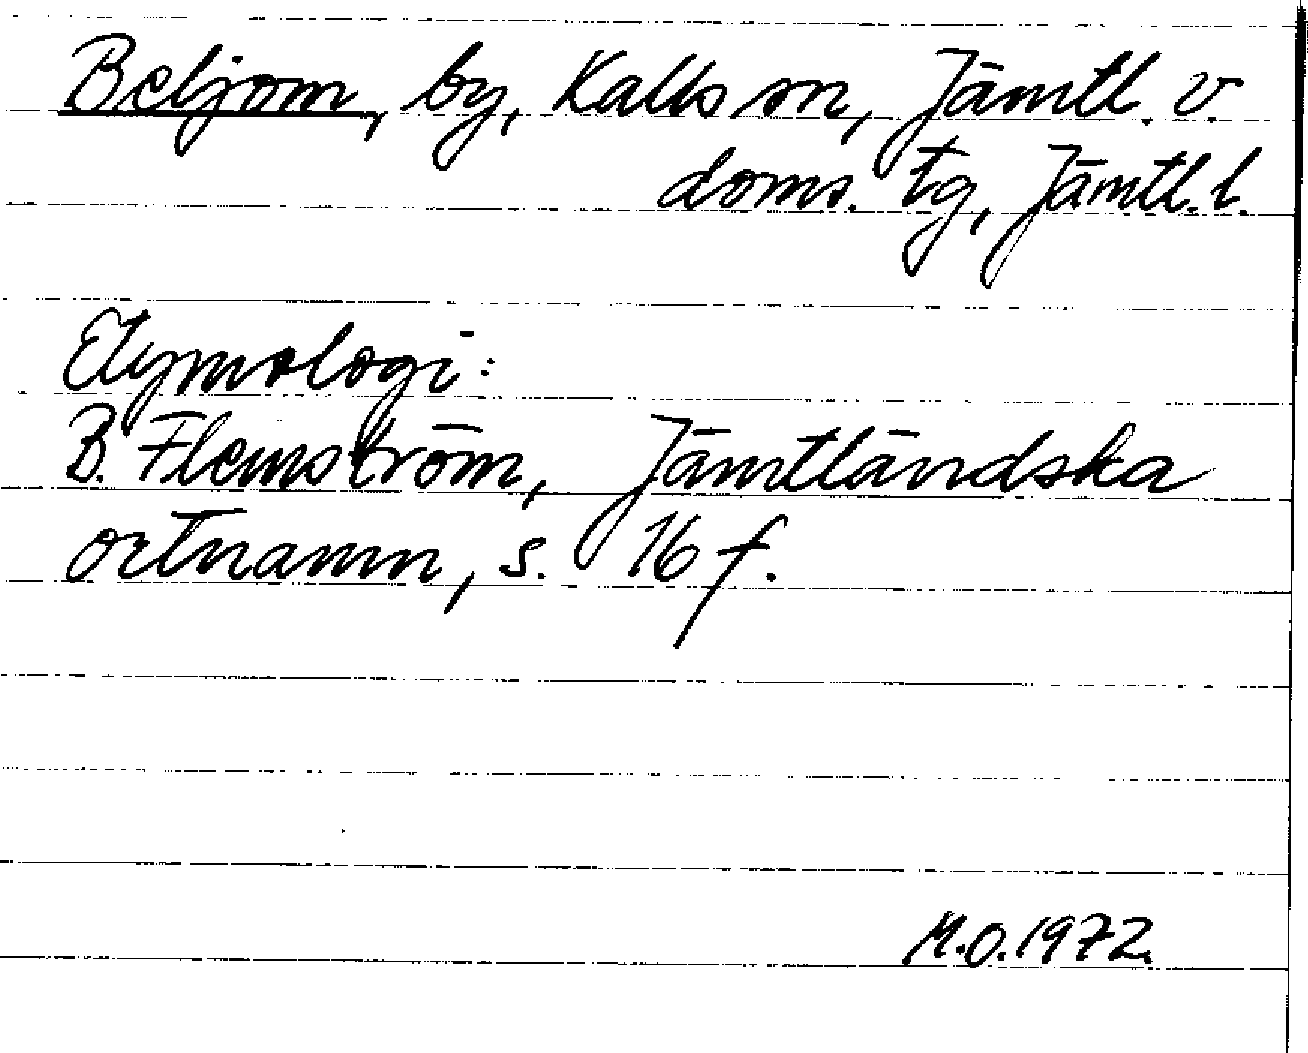 Beljom, by, Kalls sn, Jämtl. v.
doms. tg, Jämtl. l.
Etymologi:
B. Flemström, Jämtländska
ortnamn, s. 16 f.
M.O. 1972.